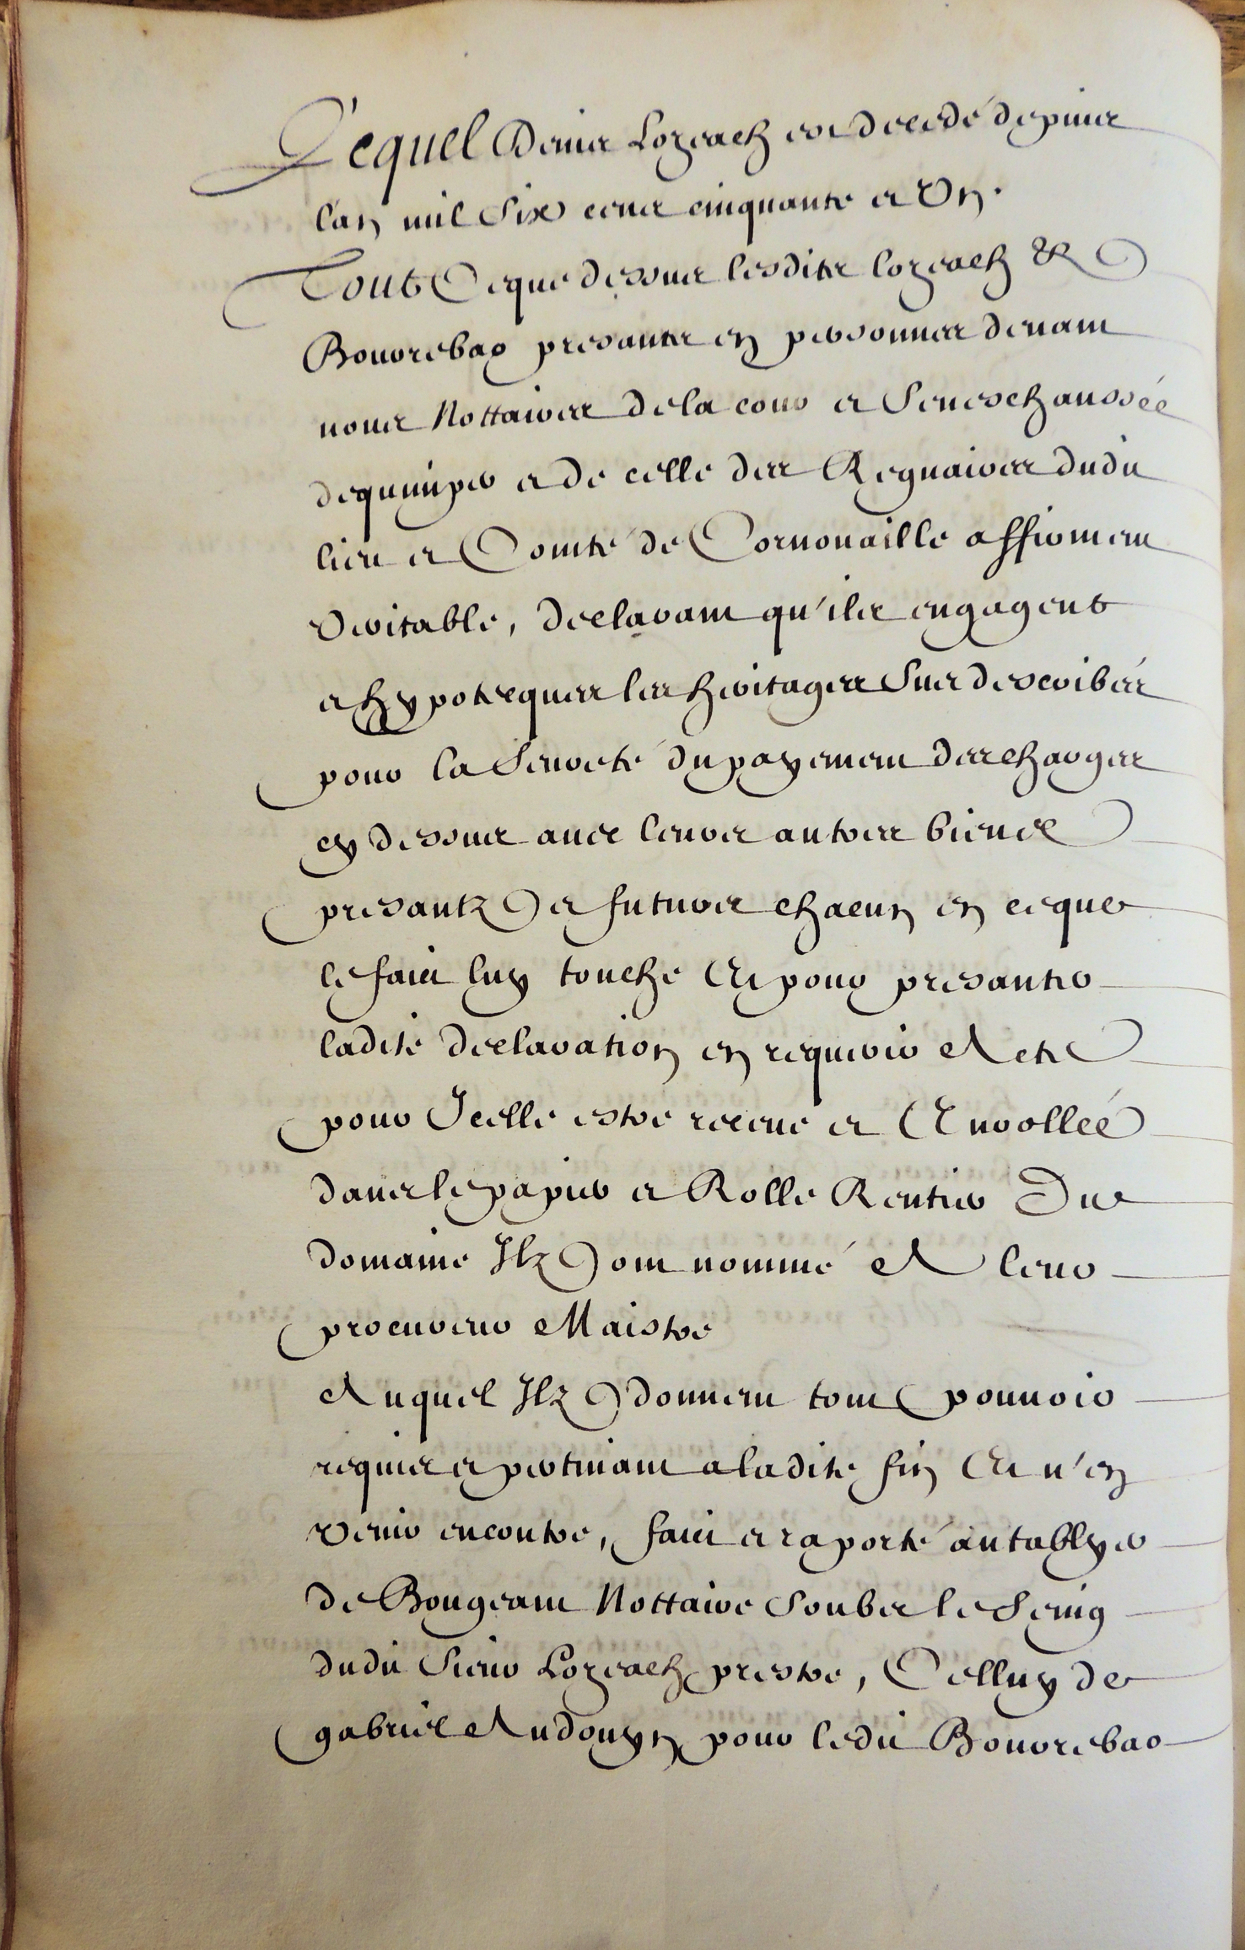 Lequel Denis Lozeach est decedé depuis
l'an mil Six cens cinquante et Un.
Tout Ce que dessus lesdits lozeach &
Bourrebao presants en personnes devant
nous Nottaires de la cour et Seneschaussée
de quimper et de celle des Reguaires dudit
lieu et Comté de Cornouaille affirment
Veritable, declarant qu'ils engagent
et hypotecques les heritages Sus describés
pour la Seureté du payement des charges
cy dessus avec leurs autres biens
presantz et futurs chacun en ce que
le faict luy touche Et pour presanter
ladite declaration en requerir Acte
pour Icelle estre receue et Enrollée
dans le papier et Rolle Rentier Du
domaine Ilz ont nommé A leur
procureur Maistre
Auquel Ilz donnent tout pouvoir
requis et pertinant a ladite fin Et n'en
Venir encontre, faict et raporté au tablyer
de Bougeant Nottaire Soubs le Seing
dudit Sieur Lozeach prestre, Celluy de
gabriel Audouyn pour ledit Bourrebao